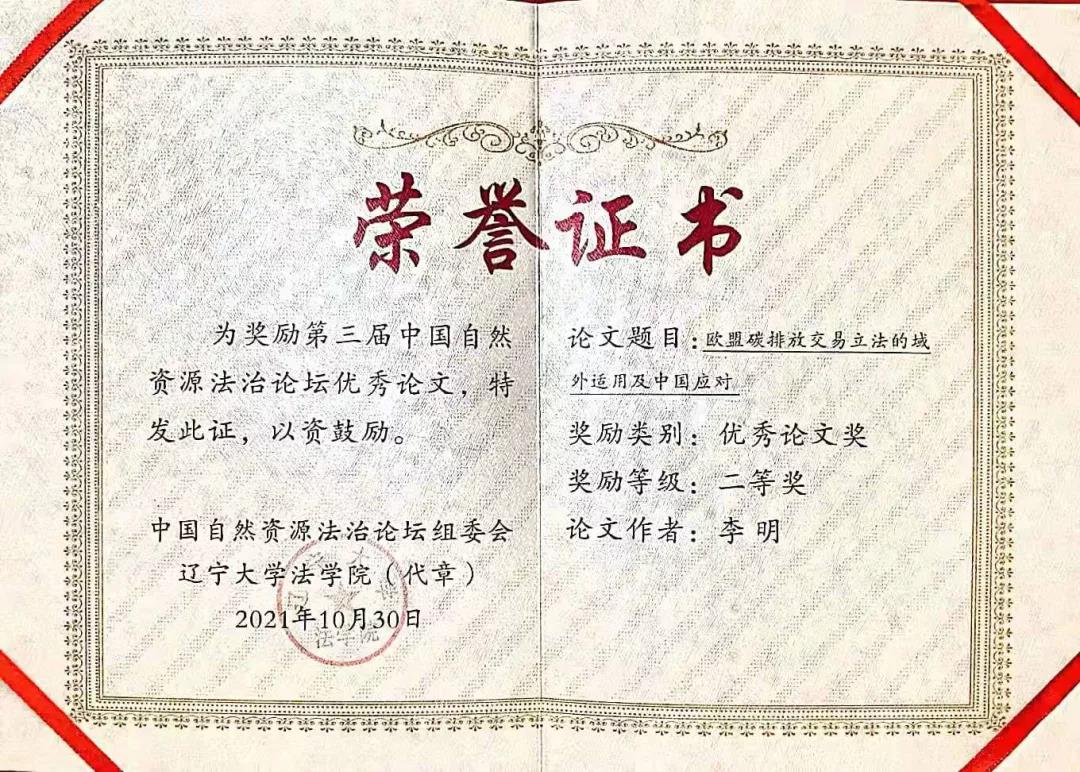 荣誉证书
为奖励第三届中国自然
资源法治论坛优秀论文，特
发此证，以资鼓励。
中国自然资源法治论坛组委会
辽宁大学法学院（代章）
2021年10月30日
法学院
论文题目：欧盟碳排放交易立法的域
外适用及中国应对
奖励类别：优秀论文奖
奖励等级：二等奖
论文作者：李明